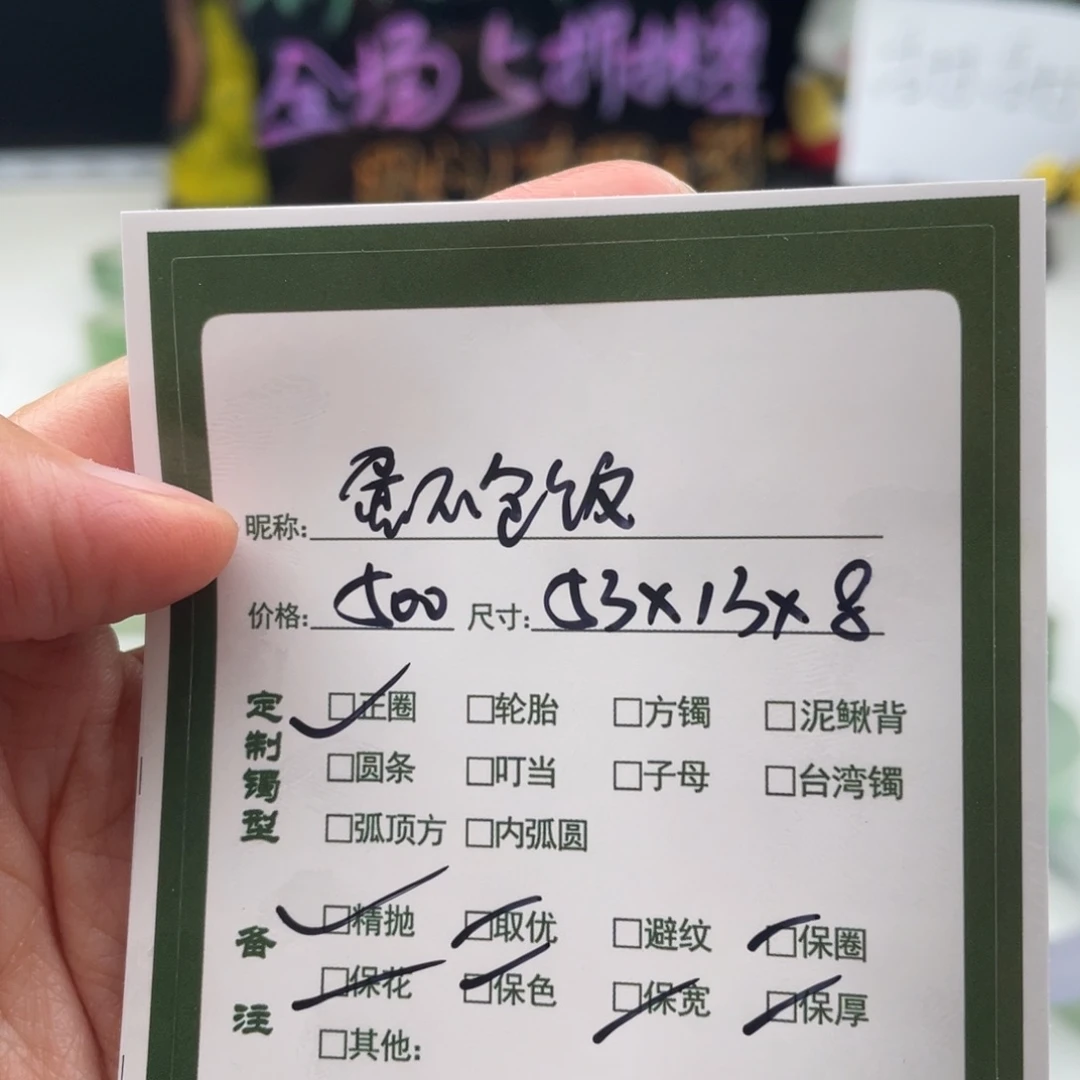 全场5折
昵称: 蛋不包饭
价格: 500 尺寸: 53×13×8
定制镯型
□正圈 □轮胎 □方镯 □泥鳅背
□圆条 □叮当 □子母 □台湾镯
□弧顶方 □内弧圆
备注
□精抛 □取优 □避纹 □保圈
□保花 □保色 □保宽 □保厚
□其他: